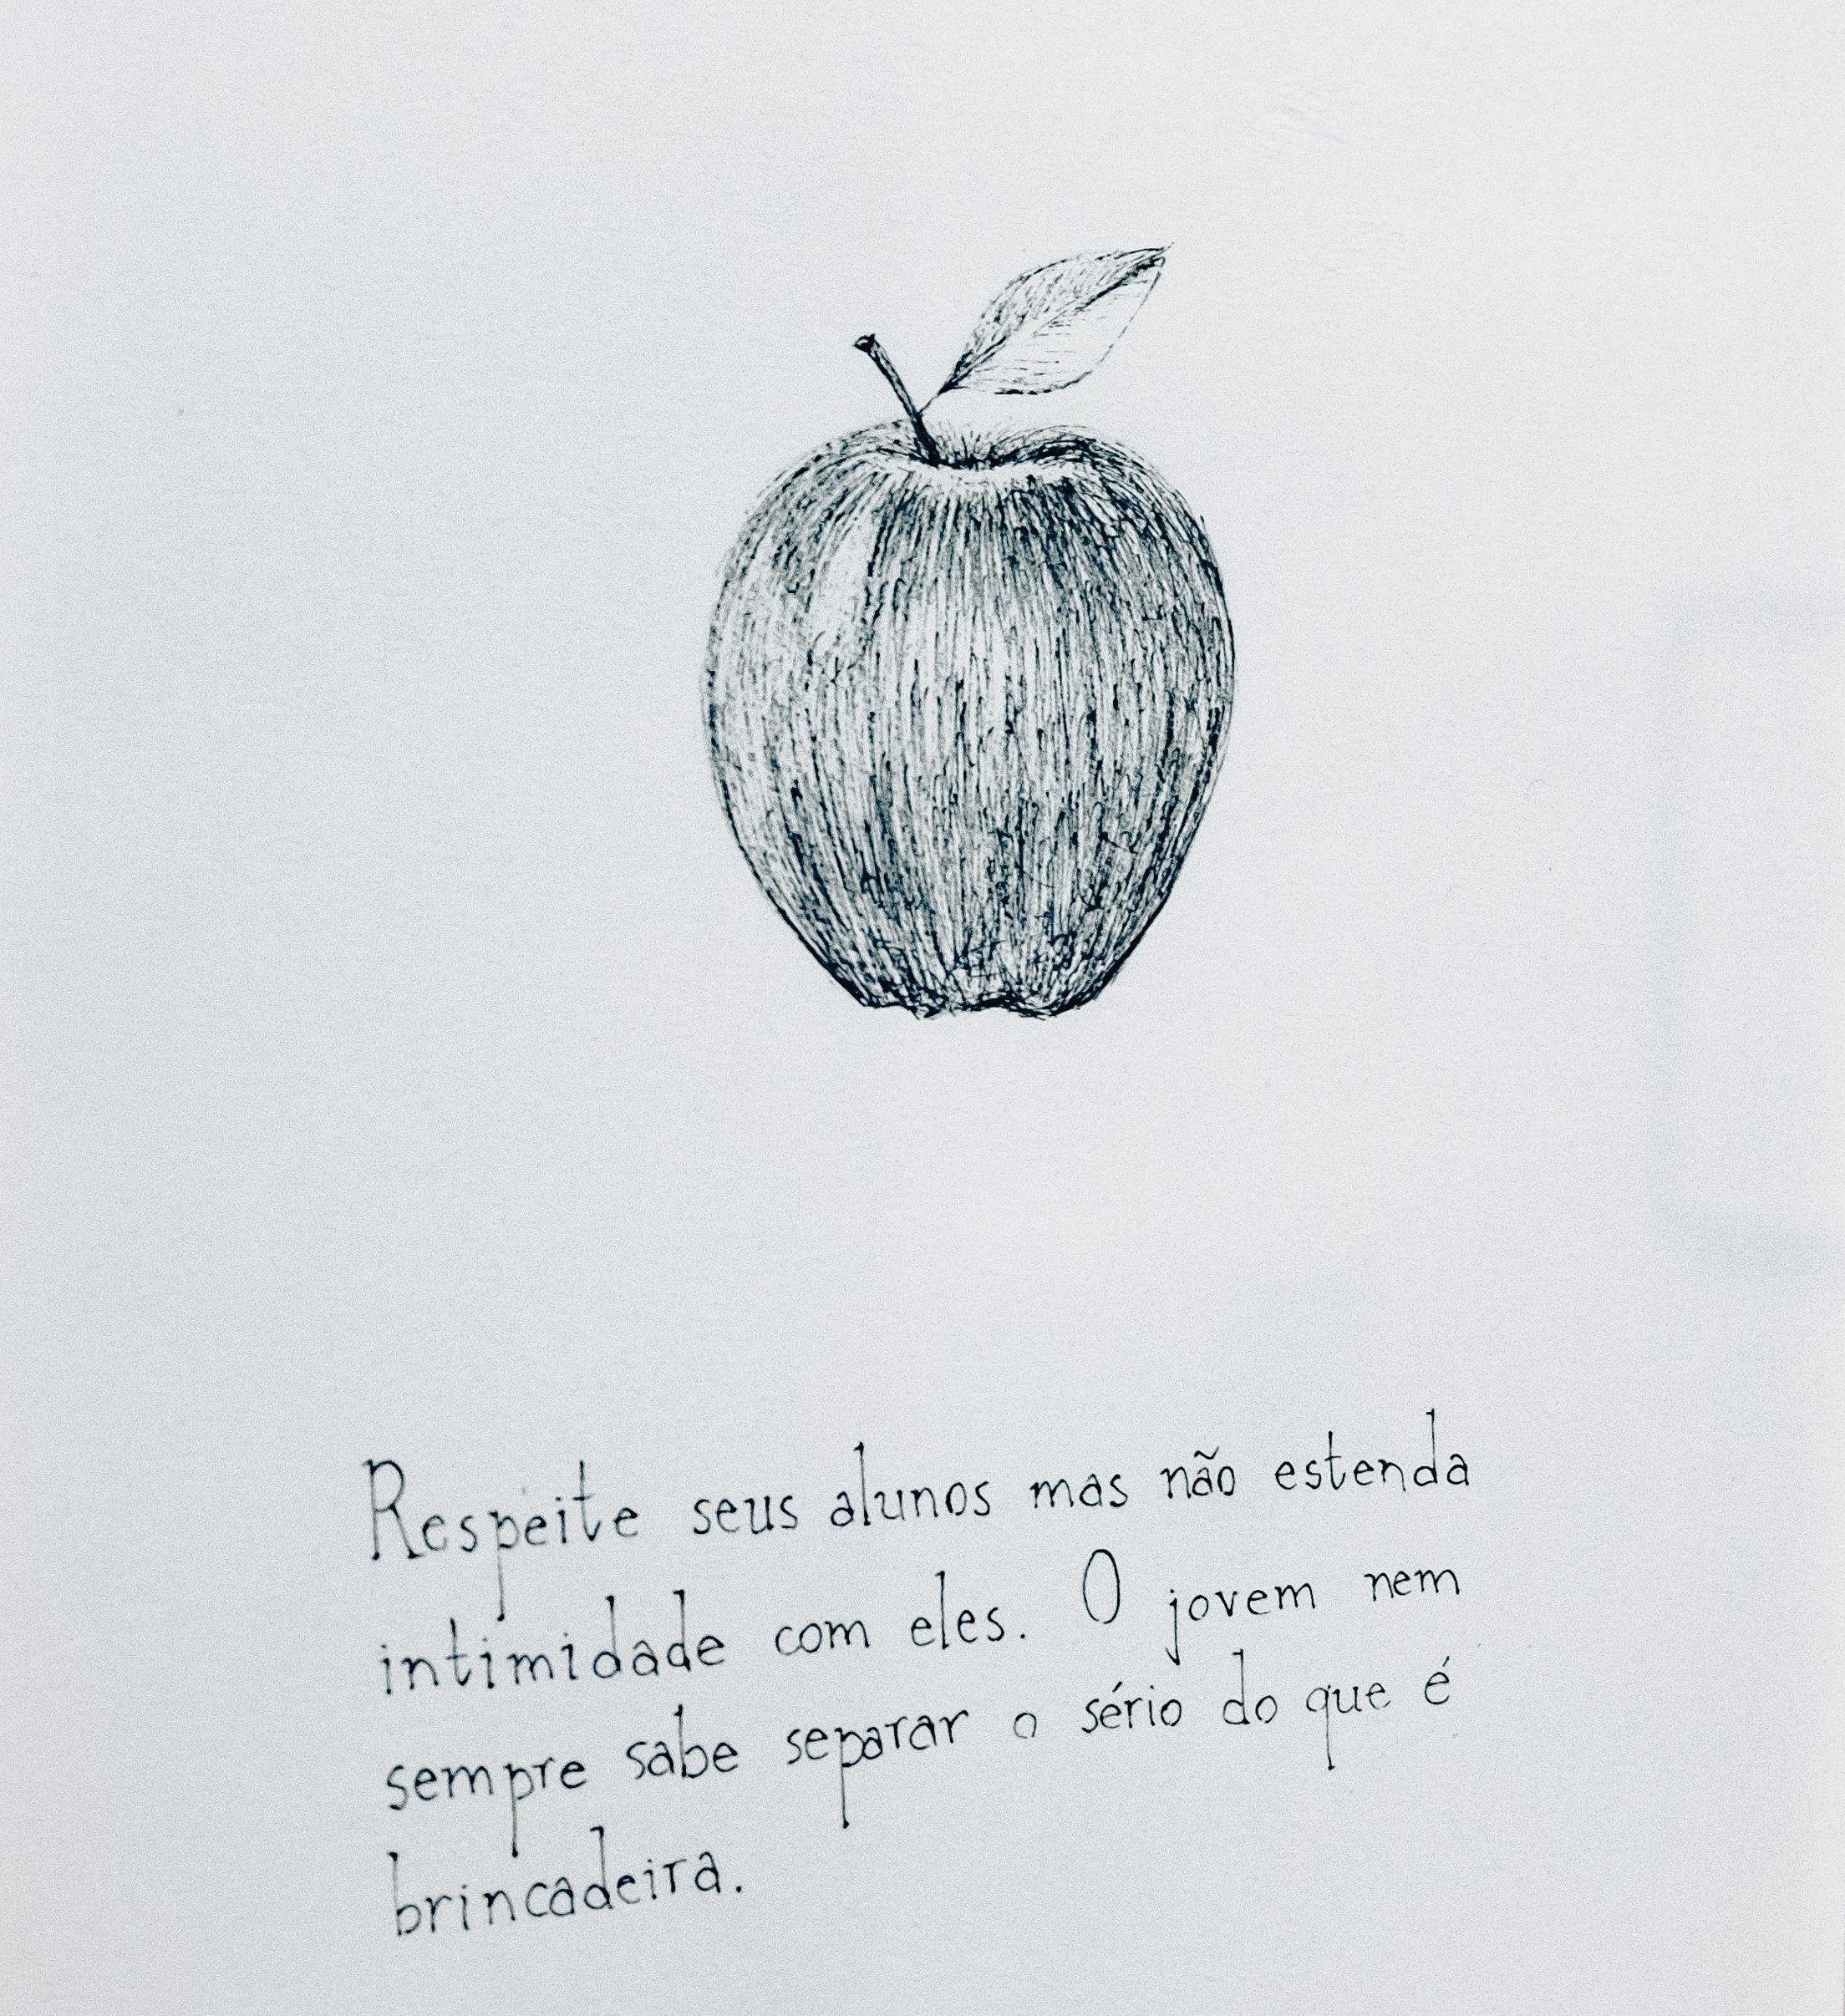 Respeite seus alunos mas não estenda
intimidade com eles. O jovem nem
sempre sabe separar o sério do que é
brincadeira.